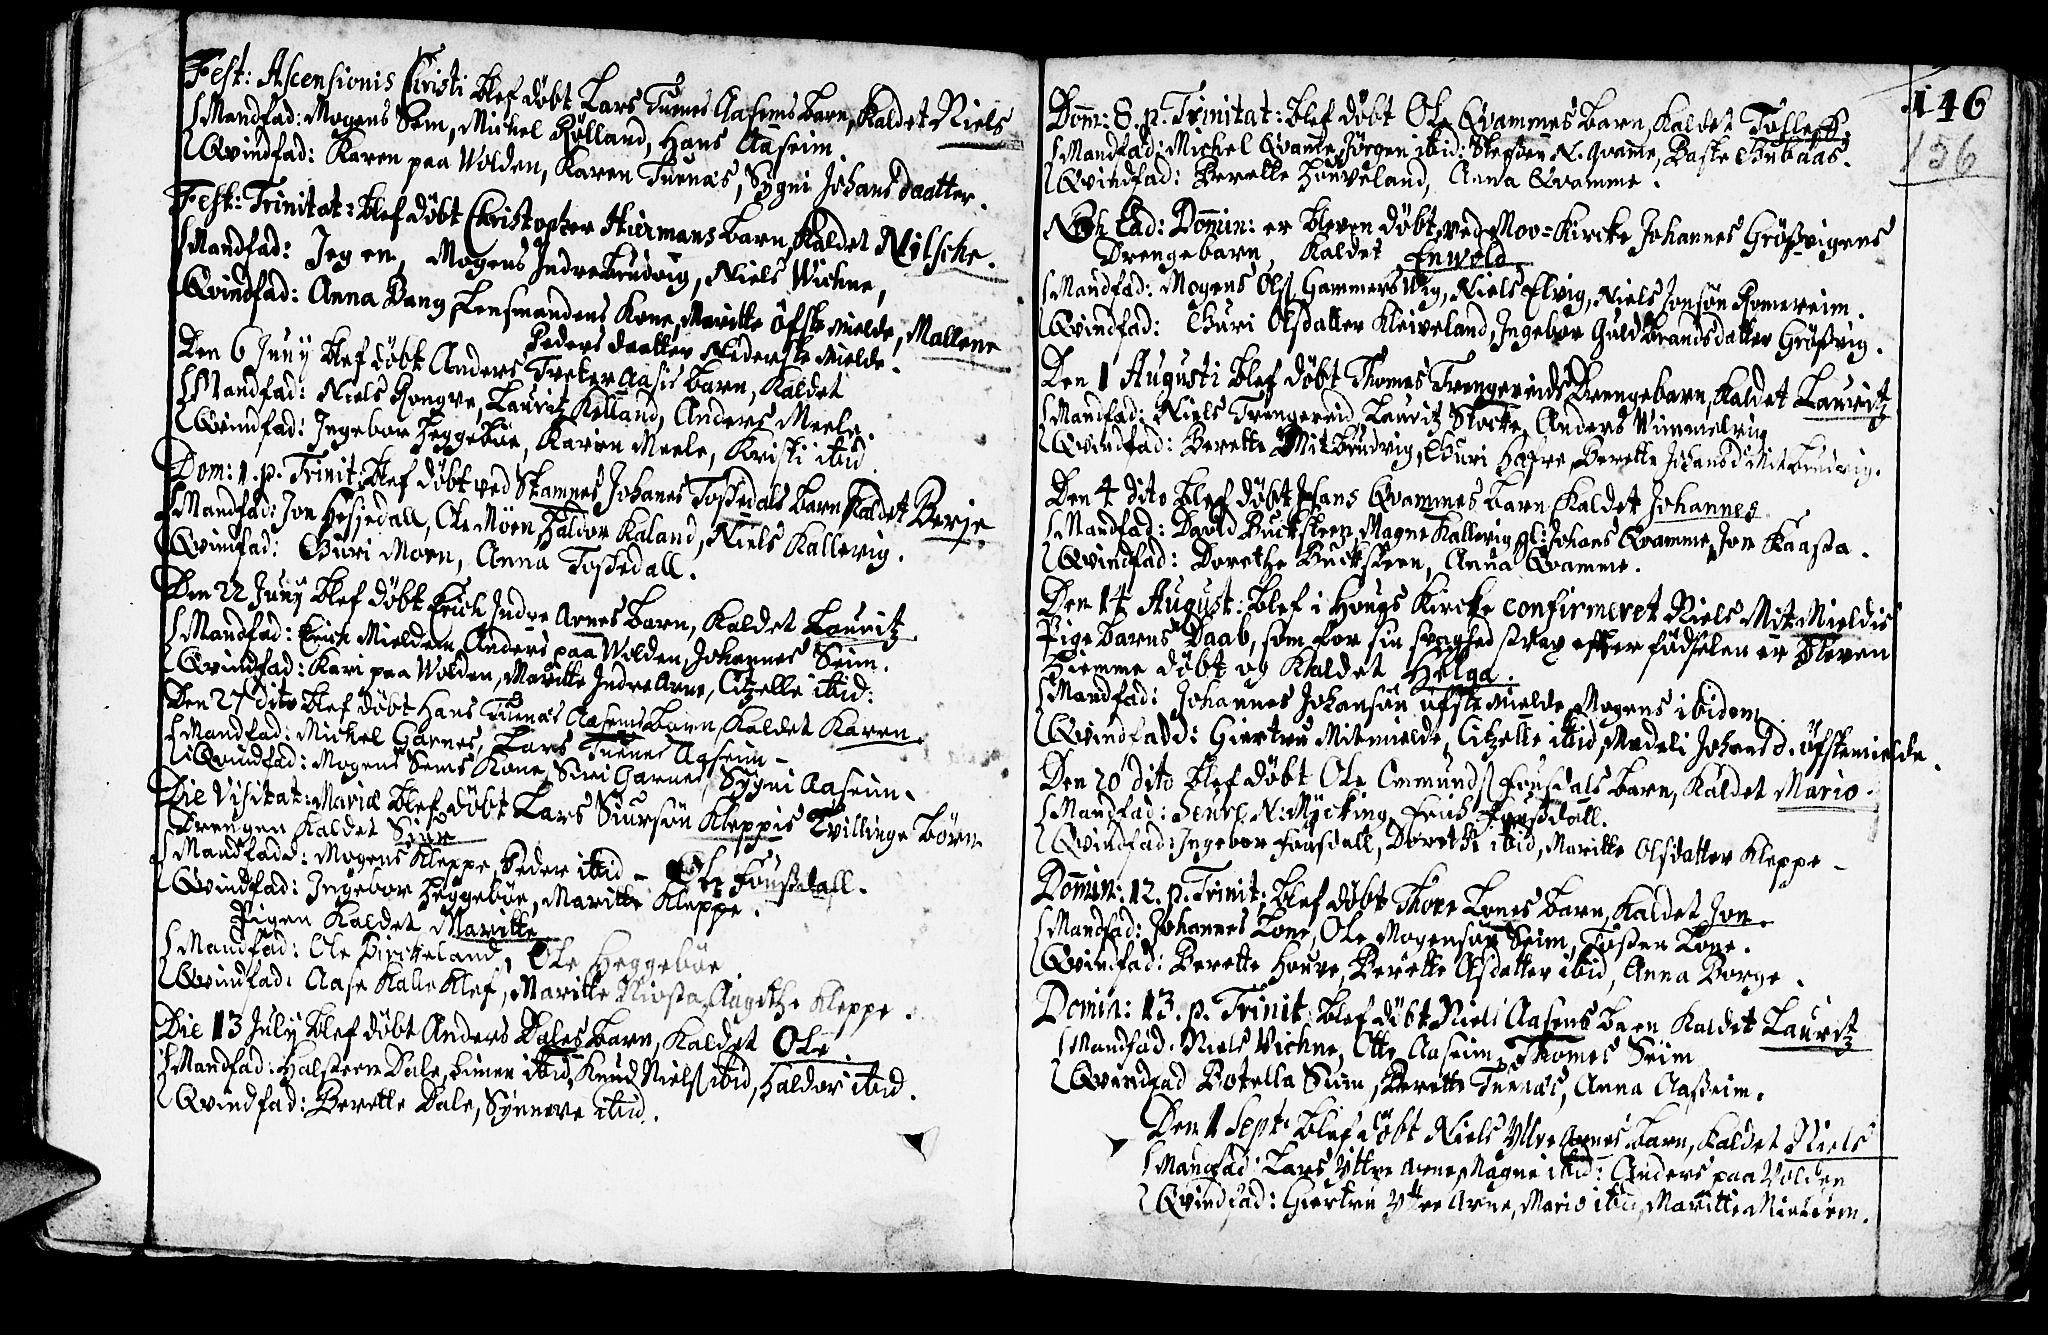 Fest: Ascensionis Christi blef döbt Lars Tuenes Aaseims barn, kaldet Niels
Mandfad: Mogens Sem, Michel Rölland, Hans Aaseim.
Qvindfad: Karen paa Wolden, Karen Tuenæs, Sygni Johans daatter.
Fest: Trinitat: blef döbt Christopher Hiermans barn, kaldet Nilsche.
Mandfad: Jeg en, Mogens Indrebrudvig, Niels Wichne,
Qvindfad: Anna Bang Lensmandens Kone, Maritte öfste Mielde, Mallene
Peders daatter Nederste Mielde.
Den 6 Junij blef döbt Anders Tveter Aasis barn, kaldet
Mandfad: Niels Rongve, Lauritz Kolland, Anders Meele.
Qvindfad: Ingebor Heggeböe, Karien Meele, Kristi ibid.
Dom: 1. p. Trinit: blef döbt ved Stamnes Johanes Tossedals barn kaldet Berje
Mandfad: Jon Hesjedall, Ole Moen, Haldor Kaland, Niels Kallevig.
Qvindfad: Guri Moen, Anna Tossedall.
Den 22 Junij blef döbt Erich Indre Arnes barn, kaldet Lauritz
Mandfad: Erich Mieldem, Anders paa Wolden, Johannes Seim.
Qvindfad: Kari paa Wolden, Maritte Indre Arne, Citzelle ibid:
Den 27 dito blef döbt Hans Tuenæs Aasems barn, kaldet Karen.
Mandfad: Michel Garnes, Lars Tuenes Aaseim -
Qvindfad: Mogens Sems Kone, Siri Garnes, Sygni Aaseim.
Die Visitat: Mariæ blef döbt Lars Siursön Kleppis Tvillinge börn
Drengen kaldet Siur
Mandfadd: Mogens Kleppe, Peder ibid - Ole Fousdall.
Qvindfad: Ingebor Heggeböe, Maritte Kleppe.
Pigen kaldet Maritte
Mandfad: Ole Birckeland, Ole Heggeböe
Qvindfad: Aase Kalle Klef, Maritte Niosta, Aagethe Kleppe.
Die 13 Julij blef döbt Anders Dales barn, kaldet Ole.
Mandfad: Halsteen Dale, Einer ibid, Knud Niels ibid, Haldor ibid.
Qvindfad: Berette Dale, Synneve ibid.
146
156
Dom: 8. p. Trinitat: blef döbt Ole Qvammes barn, kaldet Tolleff.
Mandfad: Michel Qvamme, Jörgen ibid: Steffen N. Qvamme, Baste
Qvindfad: Berette Houveland, Anna Qvamme.
Noch ead: Domin: er bleven döbt ved Moo=Kircke Johannes Grössvigens
Drengebarn, kaldet Enwold
Mandfad: Mogens Ols Gammersvig, Niels Elvig, Niels Jonsön Romereim.
Qvindfad: Guri Olsdatter Kleiveland, Ingebor Guldbrandsdatter Grössvig.
Den 1 Augusti blef döbt Thomes Trengereids Drengebarn, kaldet Lauritz
Mandfad: Niels Trengereid, Lauritz Stocke, Anders Vimmelvig
Qvindfad: Berette Mitbrudvig, Guri Hafre, Berette Johans d. Mitbrudvig.
Den 4 dito blef döbt Hans Qvammes barn kaldet Johannes
Mandfad: David Buchsteen, Magne Kallevig, gl: Johans Qvamme, Jon Kaassa.
Qvindfad: Dorethe Bucksteen, Anna Qvamme.
Den 14 August: blef i Hougs Kircke confirmeret Niels Mit Mieldis
Pige barns Daab, som for sin svaghed strax efter födselen er bleven
Hiemme döbt og kaldet Helga.
Mandfad: Johannes Johansön öfste Mielde, Mogens ibidem
Qvindfadd: Giertru Mitmielde, Citzelle ibid, Madeli Johans d. öfstemielde.
Den 20 dito blef döbt Ole Emmunds Fousdals barn, kaldet Mario.
Mandfad: Henr. N. Mijcking, Erich Fousdall.
Qvindfad: Ingebor Foasdall, Dorethe ibid, Maritte Olsdatter Kleppe -
Domin: 12. p. Trinit: blef döbt Thore Lones barn, kaldet Jon.
Mandfad: Johannes Lone, Ole Mogensön Seim, Tosten Lone.
Qvindfad: Berette Houve, Berette Asdatter ibid, Anna Borge.
Domin: 13. p. Trinit: blef döbt Niels Aasens barn kaldet Lauritz
Mandfad: Niels Vichne, Otte Aaseim, Thomes Seim
Qvindfad Botella Siim, Berette Tuenæs, Anna Aasseim.
Den 1 Sept: blef döbt Niels Yttre Arnes barn, kaldet Niels
Mandfad: Lars Yttre Arne, Magne ibid: Anders paa Volden
Qvindfad: Giertru Yttre Arne, Mario ibid, Maritte Mieldem.